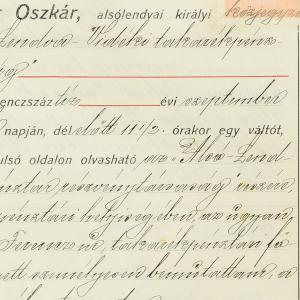 r Oszkár, alsólendyai királyi közjegyző
Lendva-Vidéki takarékpénz-
ság"
enczszáz tíz évi szeptember
napján, dél előtt 11 1/2 órakor egy váltót,
ulsó oldalon olvasható az "Alsó-Lend-
nztár részvénytársaság" részére,
pénztári helyiségében, az ugyan
Ferencz úr, takarékpénztári fő
ott, személyesen bemutattam, a